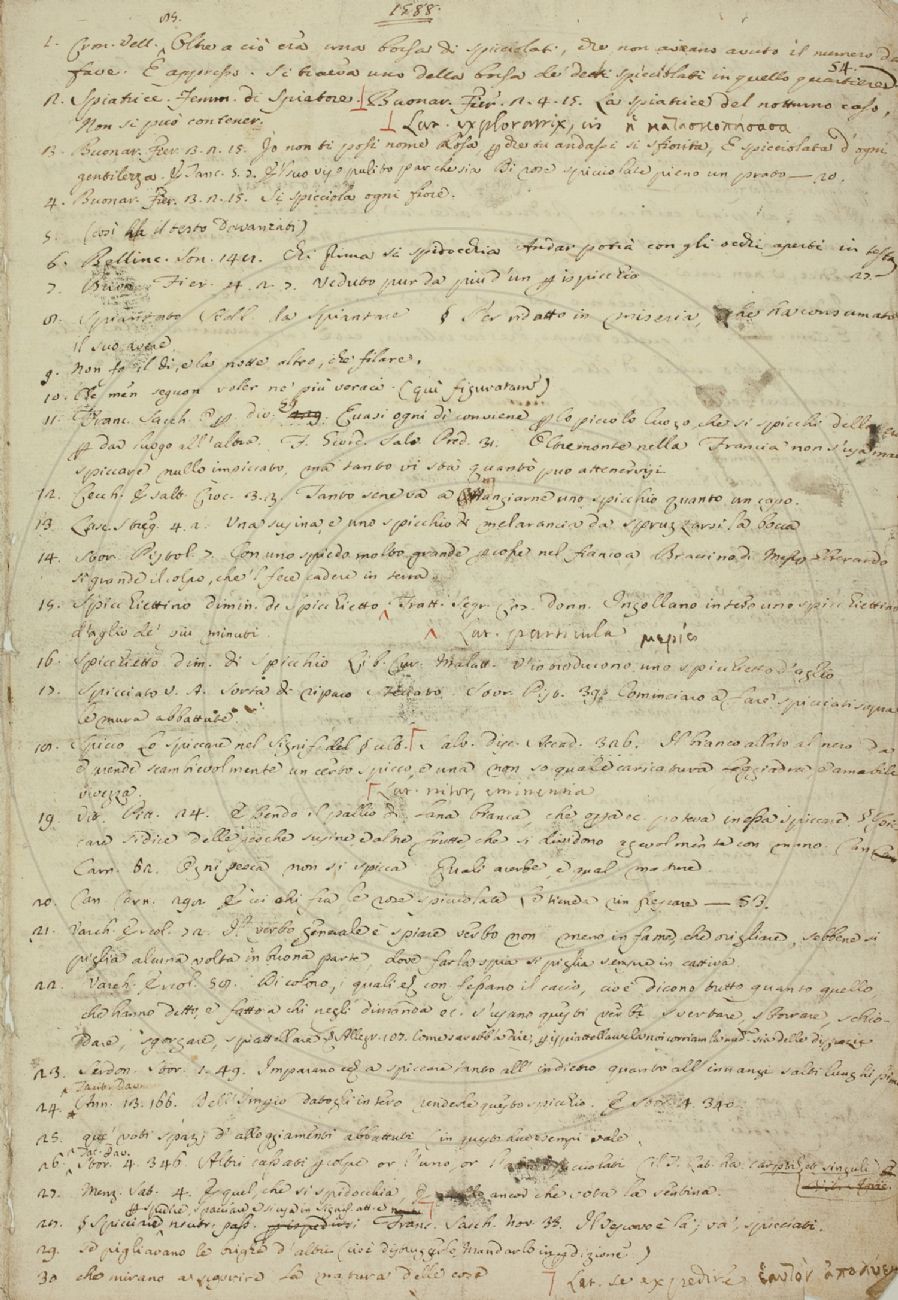 1588.
1. Cron. Vell. Oltre a ciò era una borsa di spicciolati, che non aveano avuto il numero da
fave. E appresso. Si traeva uno della borsa de' detti spicciolati in quello quartiere 54.
2. Spiatrice. Femm. di Spiatore. Buonar. Fier. 2. 4. 15. La spiatrice del notturno caso,
Non si può contener. Lat. exploratrix,
3. Buonar. Fier. 3. 2. 15. Io non ti posi nome Rosa perche tu andassi sì sfiorita, E spicciolata d'ogni
gentilezza. E Tanc. 5. 7. E'l suo viso pulito par che sia Di rose spicciolate pieno un prato — 20.
4. Buonar. Fier. 3. 2. 15. Si spicciola ogni fiore.
5. (così ha il testo Davanzati)
6. Bellinc. Son. 141. Chi prima si spidocchia Andar potrà con gli occhi aperti in testa
7. Buon. Fier. 4. 2. 7. Veduto pur da più d'un per ispicchio 27.
8. Spiantato da Spiantare § Per ridotto in miseria, che ha consumato
il suo avere
9. Non fo il dì, e la notte altro, che filare.
10. Che men seguon voler ne' più veraci. (quì figuratam.)
11. Franc. Sacch. Quasi ogni dì conviene per lo piccolo luogo, che si spicchi
per dar luogo all'altra. F. Giord. Salv. Pred. 31. Oltremonte nella Francia non s'usa mai
spiccare nullo impiccato, ma tanto vi sta quanto può attenervisi.
12. Cecch. Esalt. Cr. 3. 3. Tanto se ne va a mangiarne uno spicchio quanto un capo.
13. Lasc. Streg. 4. 2. Una susina e uno spicchio di melarancia da spruzzarsi la bocca
14. Stor. Pistol. 7. Con uno spiedo molto grande percosse nel fianco a Braccino di Messer Gherardo
sì grande il colpo, che 'l fece cadere in terra.
15. Spicchiettino dimin. di Spicchietto. Tratt. Segr. Cos. Donn. Ingollano intero uno spicchiettino
d'aglio de' più minuti. Lat. particula μερίς
16. Spicchietto dim. di Spicchio Lib. Cur. Malatt. V'introducono uno spicchietto d'aglio
17. Spicciato v. A. Sorta di riparo Steccato. Stor. Pist. 39. Cominciaro a fare spicciati sopra
le mura abbattute.
18. Spicco. Lo spiccare nel signif. del § ult. Salv. Disc. Accad. 326. Il bianco allato al nero dà
e prende scambievolmente un certo spicco, e una non so quale caricatura leggiadra e amabile
vivezza. Lat. nitor, eminentia
19. Vit. Pitt. 24. Essendo il pallio di lana bianca, che essa ec. poteva in essa spiccare. § Spic-
care si dice delle pesche susine e altre frutte che si dividono agevolmente con mano. Cant.
Carn. 52. Ogni pesca non si spicca Quali acerbe, e qual mature.
20. Can. Carn. 292. E ci chi fra le rose spicciolate Le tienda un frescare — 53.
21. Varch. Ercol. 72. Il verbo generale è spiare verbo non meno infame, che origliare, sebbene si
piglia alcuna volta in buona parte, dove far la spia si piglia sempre in cattiva
22. Varch. Ercol. 59. Di coloro, i quali ec. con lesano il cacio, cioè dicono tutto quanto quello,
che hanno detto, e fatto a chi negli dimanda ec. s'usano questi verbi svertare, sborrare, schio-
dare, sgorgare, spiattellare Allegr. 107. Come sarebbe a dire, per ispiattellarvela
23. Serdon. Stor. 1. 49. Imparano ec. a spiccare tanto all'indietro quanto all'innanzi salti lunghi
24. Tacit. Dav. Ann. 13. 166. Dell'Impio datogli intero renderle questo spicchio. E Stor. 4. 340.
25. que' voti spazj d'alloggiamenti abbattuti (in questi due esempi vale.
26. Tac. Dav. Stor. 4. 346. Altri cassati per colpe or l'uno, or spicciolati (il T. Lat. ha carptim et singuli)
27. Menz. Sat. 4. E quel, che si spidocchia, E quello ancor che vota la sentina.
28. § Spicciare neutr. pass. Franc. Sacch. Nov. 35. Il vescovo è là; va', spicciati.
29. si pigliavano le brighe d'altri (cioè
30. che mirano a spiare la natura delle cose Lat. se expedire, ἑαυτὸν ἀπολύειν